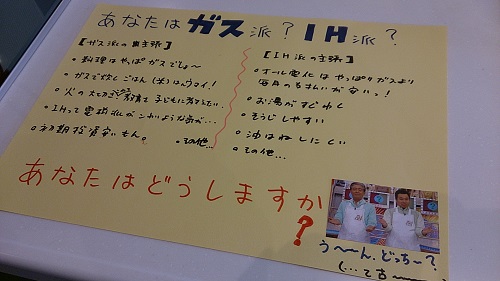 あなたは ガス派？ IH派？
【ガス派の主張】
・料理はやっぱガスでしょ〜
・ガスで炊しごはん（米）はウマイ！
・火の大切さ 教育で 子どもに考えたい。
・IHって電磁波がこわいような気が…
・初期投資安いもん。
・その他…
【IH派の主張】
・オール電化はやっぱりガスより
毎月の支払いが安いっ！
・お湯がすぐわく
・そうじしやすい
・油はねしにくい
・その他…
あなたはどうしますか？
う〜〜ん、どっち〜？